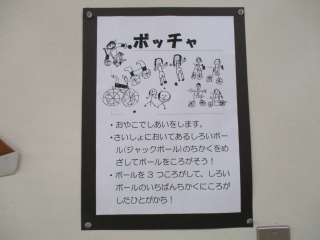 ボッチャ
・おやこでしあいをします。
・さいしょにおいてあるしろいボー
ル(ジャックボール)のちかくをめ
ざしてボールをころがそう！
・ボールを 3 つころがして、しろい
ボールのいちばんちかくにころが
したひとがかち！